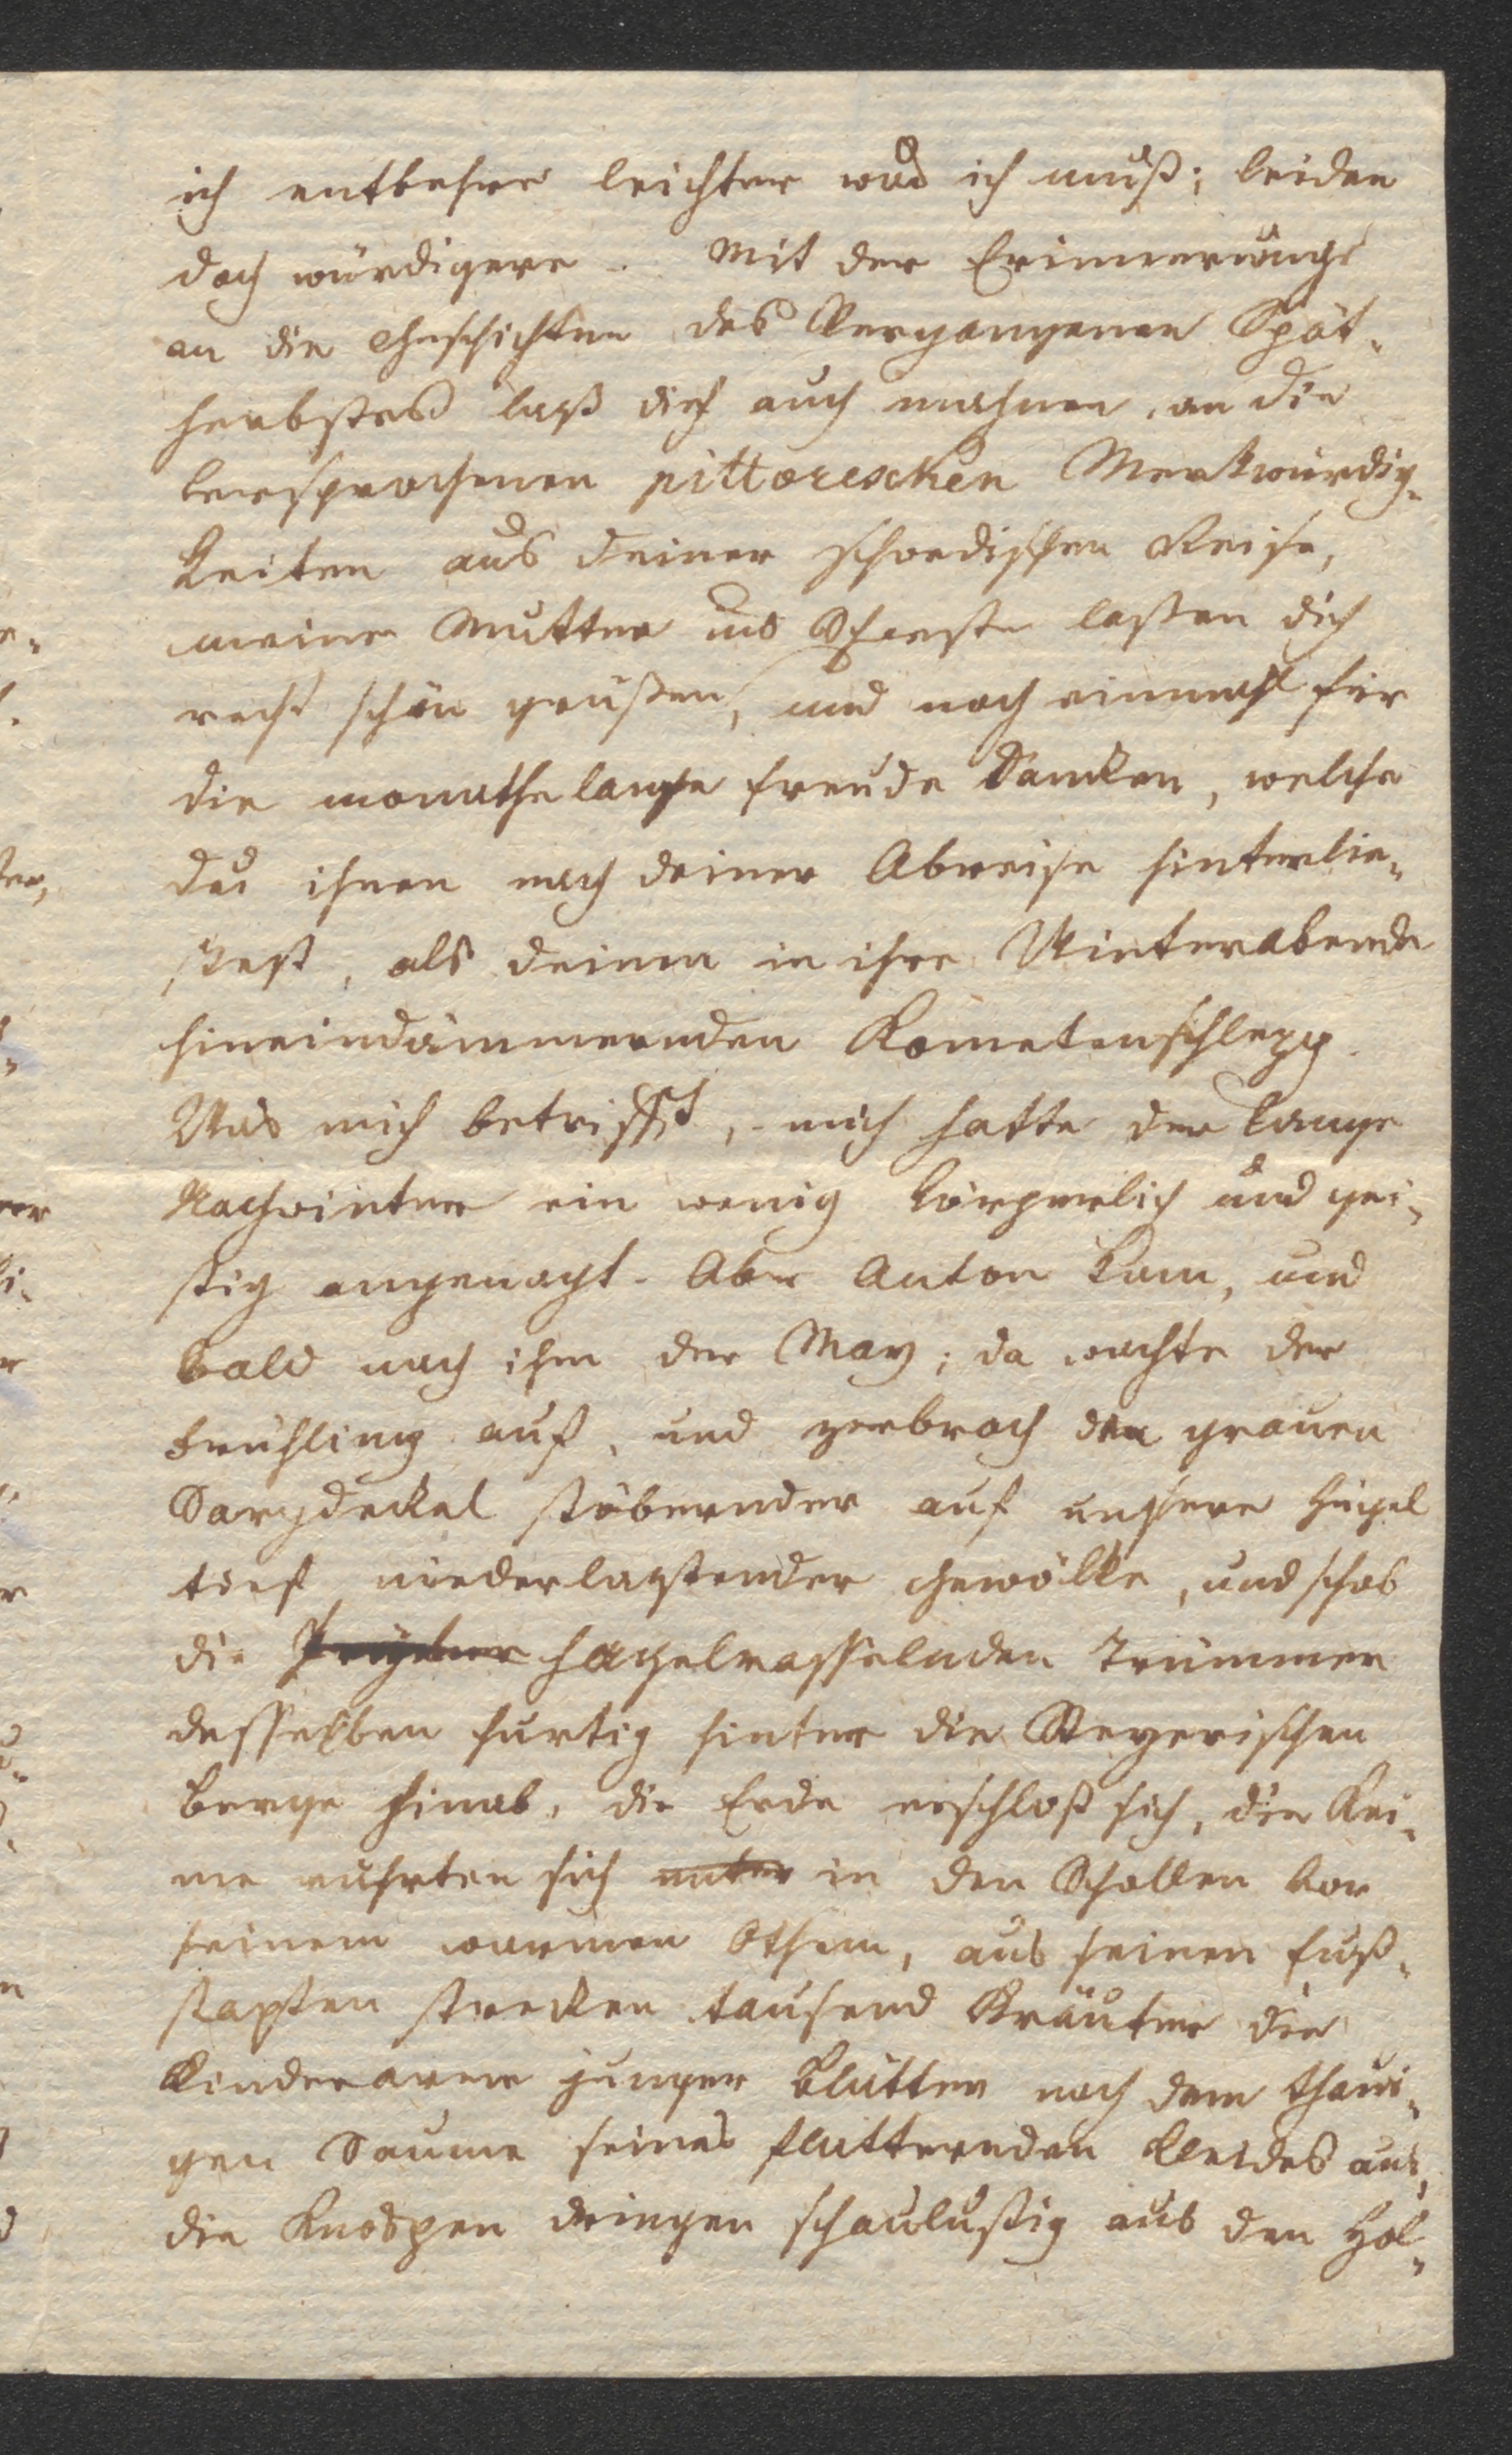 ich entbehre leichter was ich muß; leiden
doch würdigere. Mit der Erinnerung
an die Geschichten des Vergangenen Spät-
herbstes laß dich auch mahnen, an die
versprochenen pittoresken Merkwürdig-
keiten aus deiner schwedischen Reise,
meine Mutter und Schwester laßen dich
recht schön grüßen, und noch einmahl für
die monathelange Freude danken, welche
du ihnen nach deiner Abreise hinterlie-
ßest, als deinen in ihre Winterabende
hineindämmernden Kometenschlepp.
Was mich betrifft, mich hatte der lange
Nachwinter ein wenig körperlich und gei-
stig angenagt. Aber Anton kam, und
bald nach ihm der May; da wachte der
Frühling auf, und zerbrach den grauen
Sargdeckel stöbernder auf unsere Hügel
tief niederlastender Gewölke, und schob
die hagelrasselnden Trümmer
desselben hurtig hinter die Steyerischen
Berge hinab, die Erde erschloß sich, die Kei-
me rührten sich unter in den Schollen vor
seinem warmen Othem, aus seinen Fuß-
stapfen strecken tausend Kräuter die
Kinderarme junger Blätter nach dem thaui-
gen Saume seines flatternden Kleides aus,
die Knospen dringen schaulustig aus den Höl-